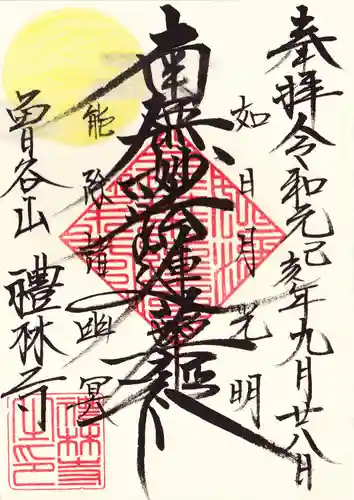 奉拝 令和元己亥年九月廿八日
如日月光明
南無妙法蓮華経
能除諸幽冥
曽谷山 禮林寺